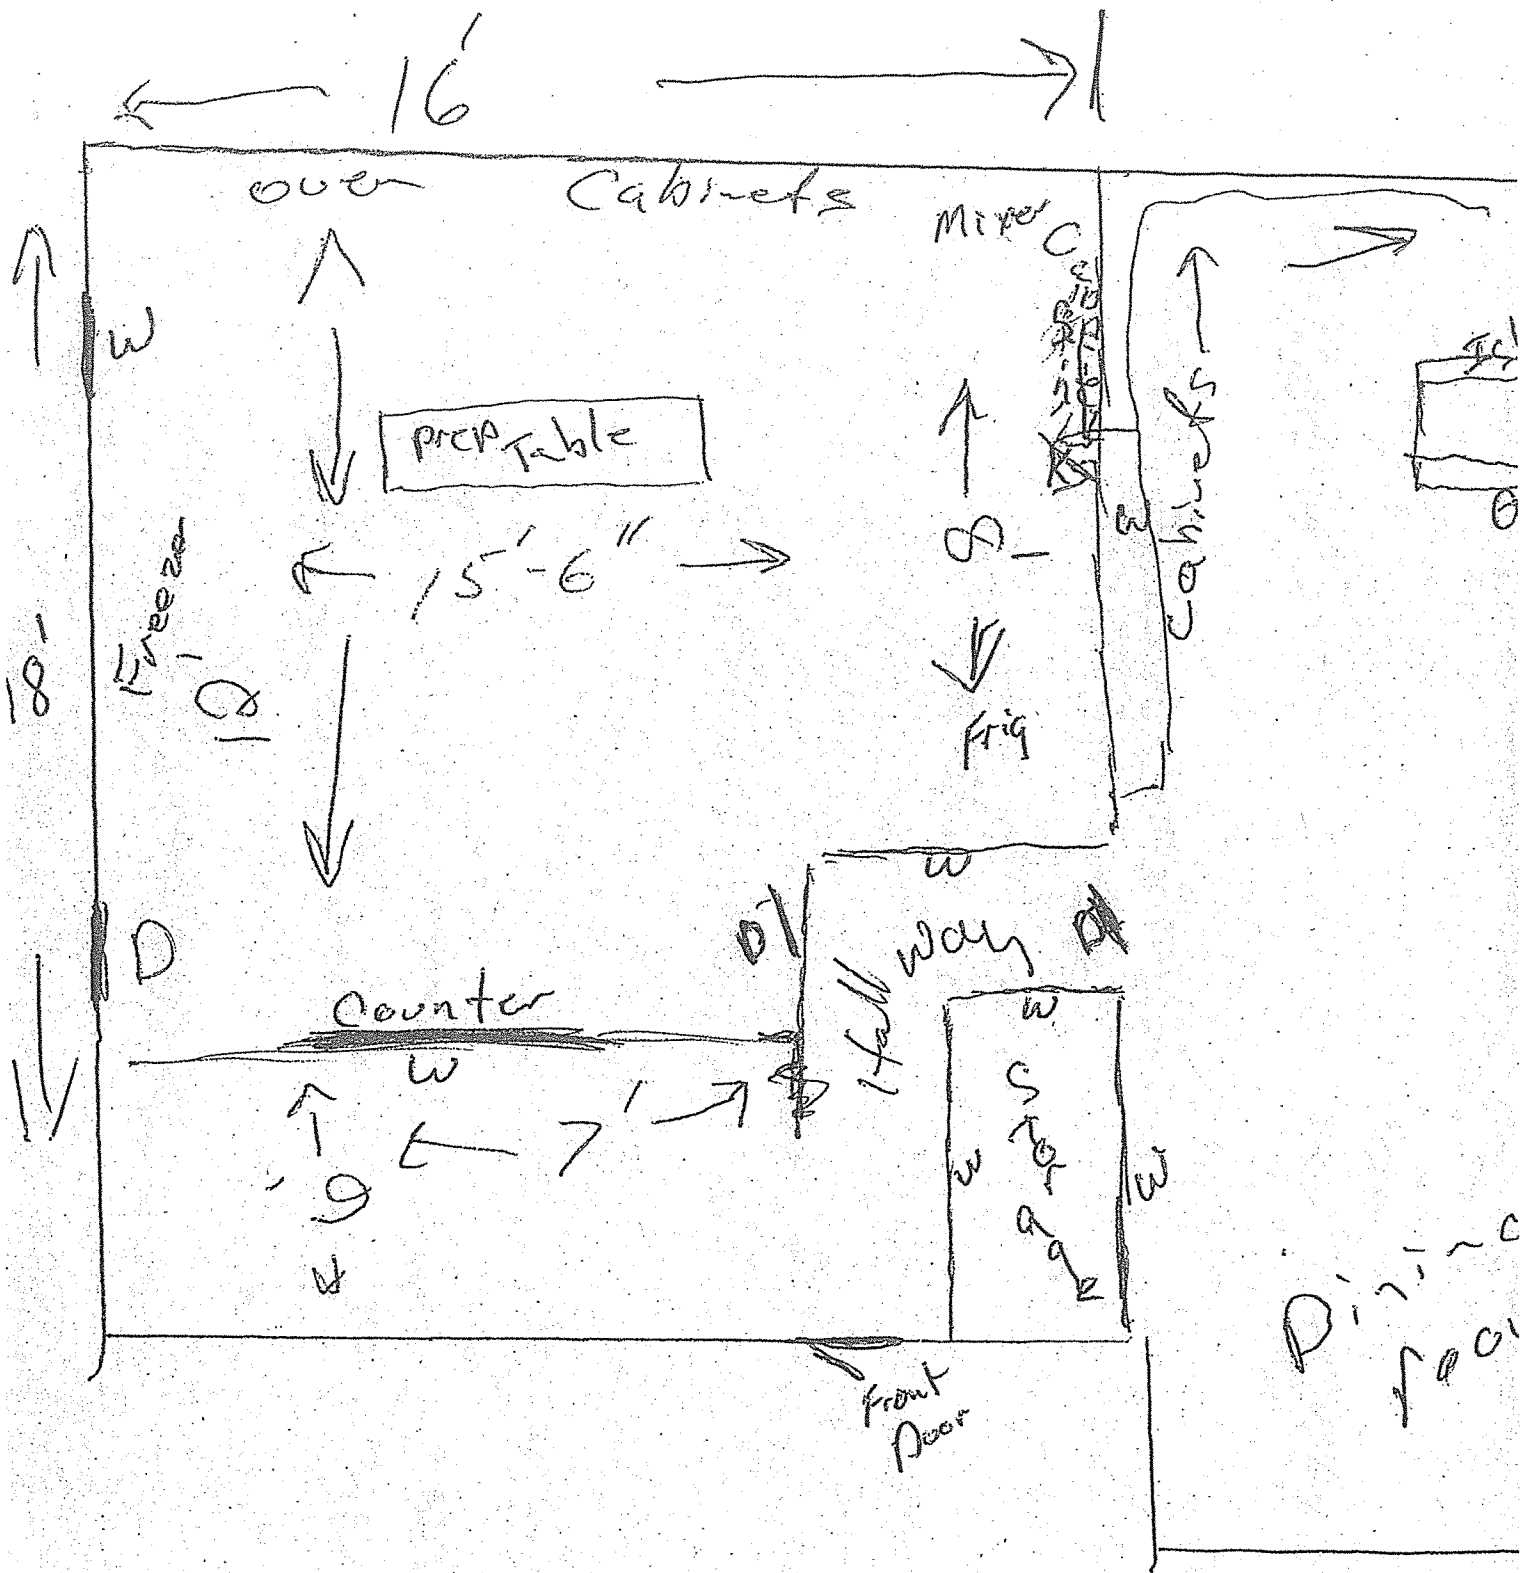 16'
oven Cabinets
Mixer
Cabinets
W
Prep Table
15'-6"
8'
W
Cabinets
Freezer
12'
18'
Frig
W
D
D
Hall way
D
Counter
W
7'
6'
W
Storage
W
W
Front
Door